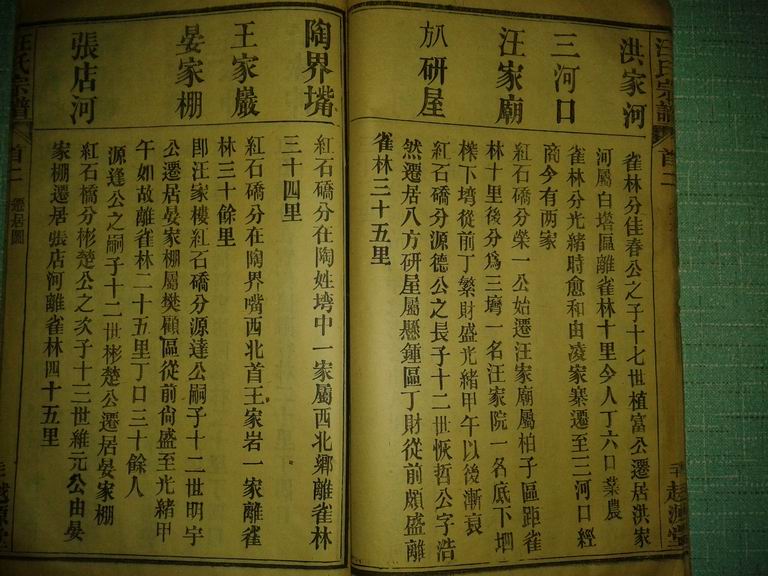 汪氏宗譜
首二
洪家河
雀林分佳春公之子十七世植富公遷居洪家
河屬白塔區離雀林十里今人丁六口業農
三河口
雀林分光緒時愈和由凌家寨遷至三河口經
商今有两家
汪家廟
紅石礄分榮一公始遷汪家廟屬柏子區距雀
林十里後分爲三塆一名汪家院一名底下垇
榨下塆從前丁繁財盛光緒甲午以後漸衰
釟研屋
紅石礄分源德公之長子十二世恢哲公字浩
然遷居八方研屋屬懸鍾區丁財從前頗盛離
雀林三十五里
陶界嘴
紅石礄分在陶姓塆中一家屬西北鄉離雀林
三十四里
王家巖
紅石礄分在陶界嘴西北首王家岩一家離雀
林三十餘里
晏家棚
即汪家樓紅石礄分源達公嗣子十二世明宇
公遷居晏家棚屬樊顧區從前尙盛至光緒甲
午如故離雀林二十五里丁口三十餘人
張店河
源逢公之嗣子十二世彬楚公遷居晏家棚
紅石橋分彬楚公之次子十三世維元公由晏
家棚遷居張店河離雀林四十五里
汪氏宗譜
首二
遷居圖